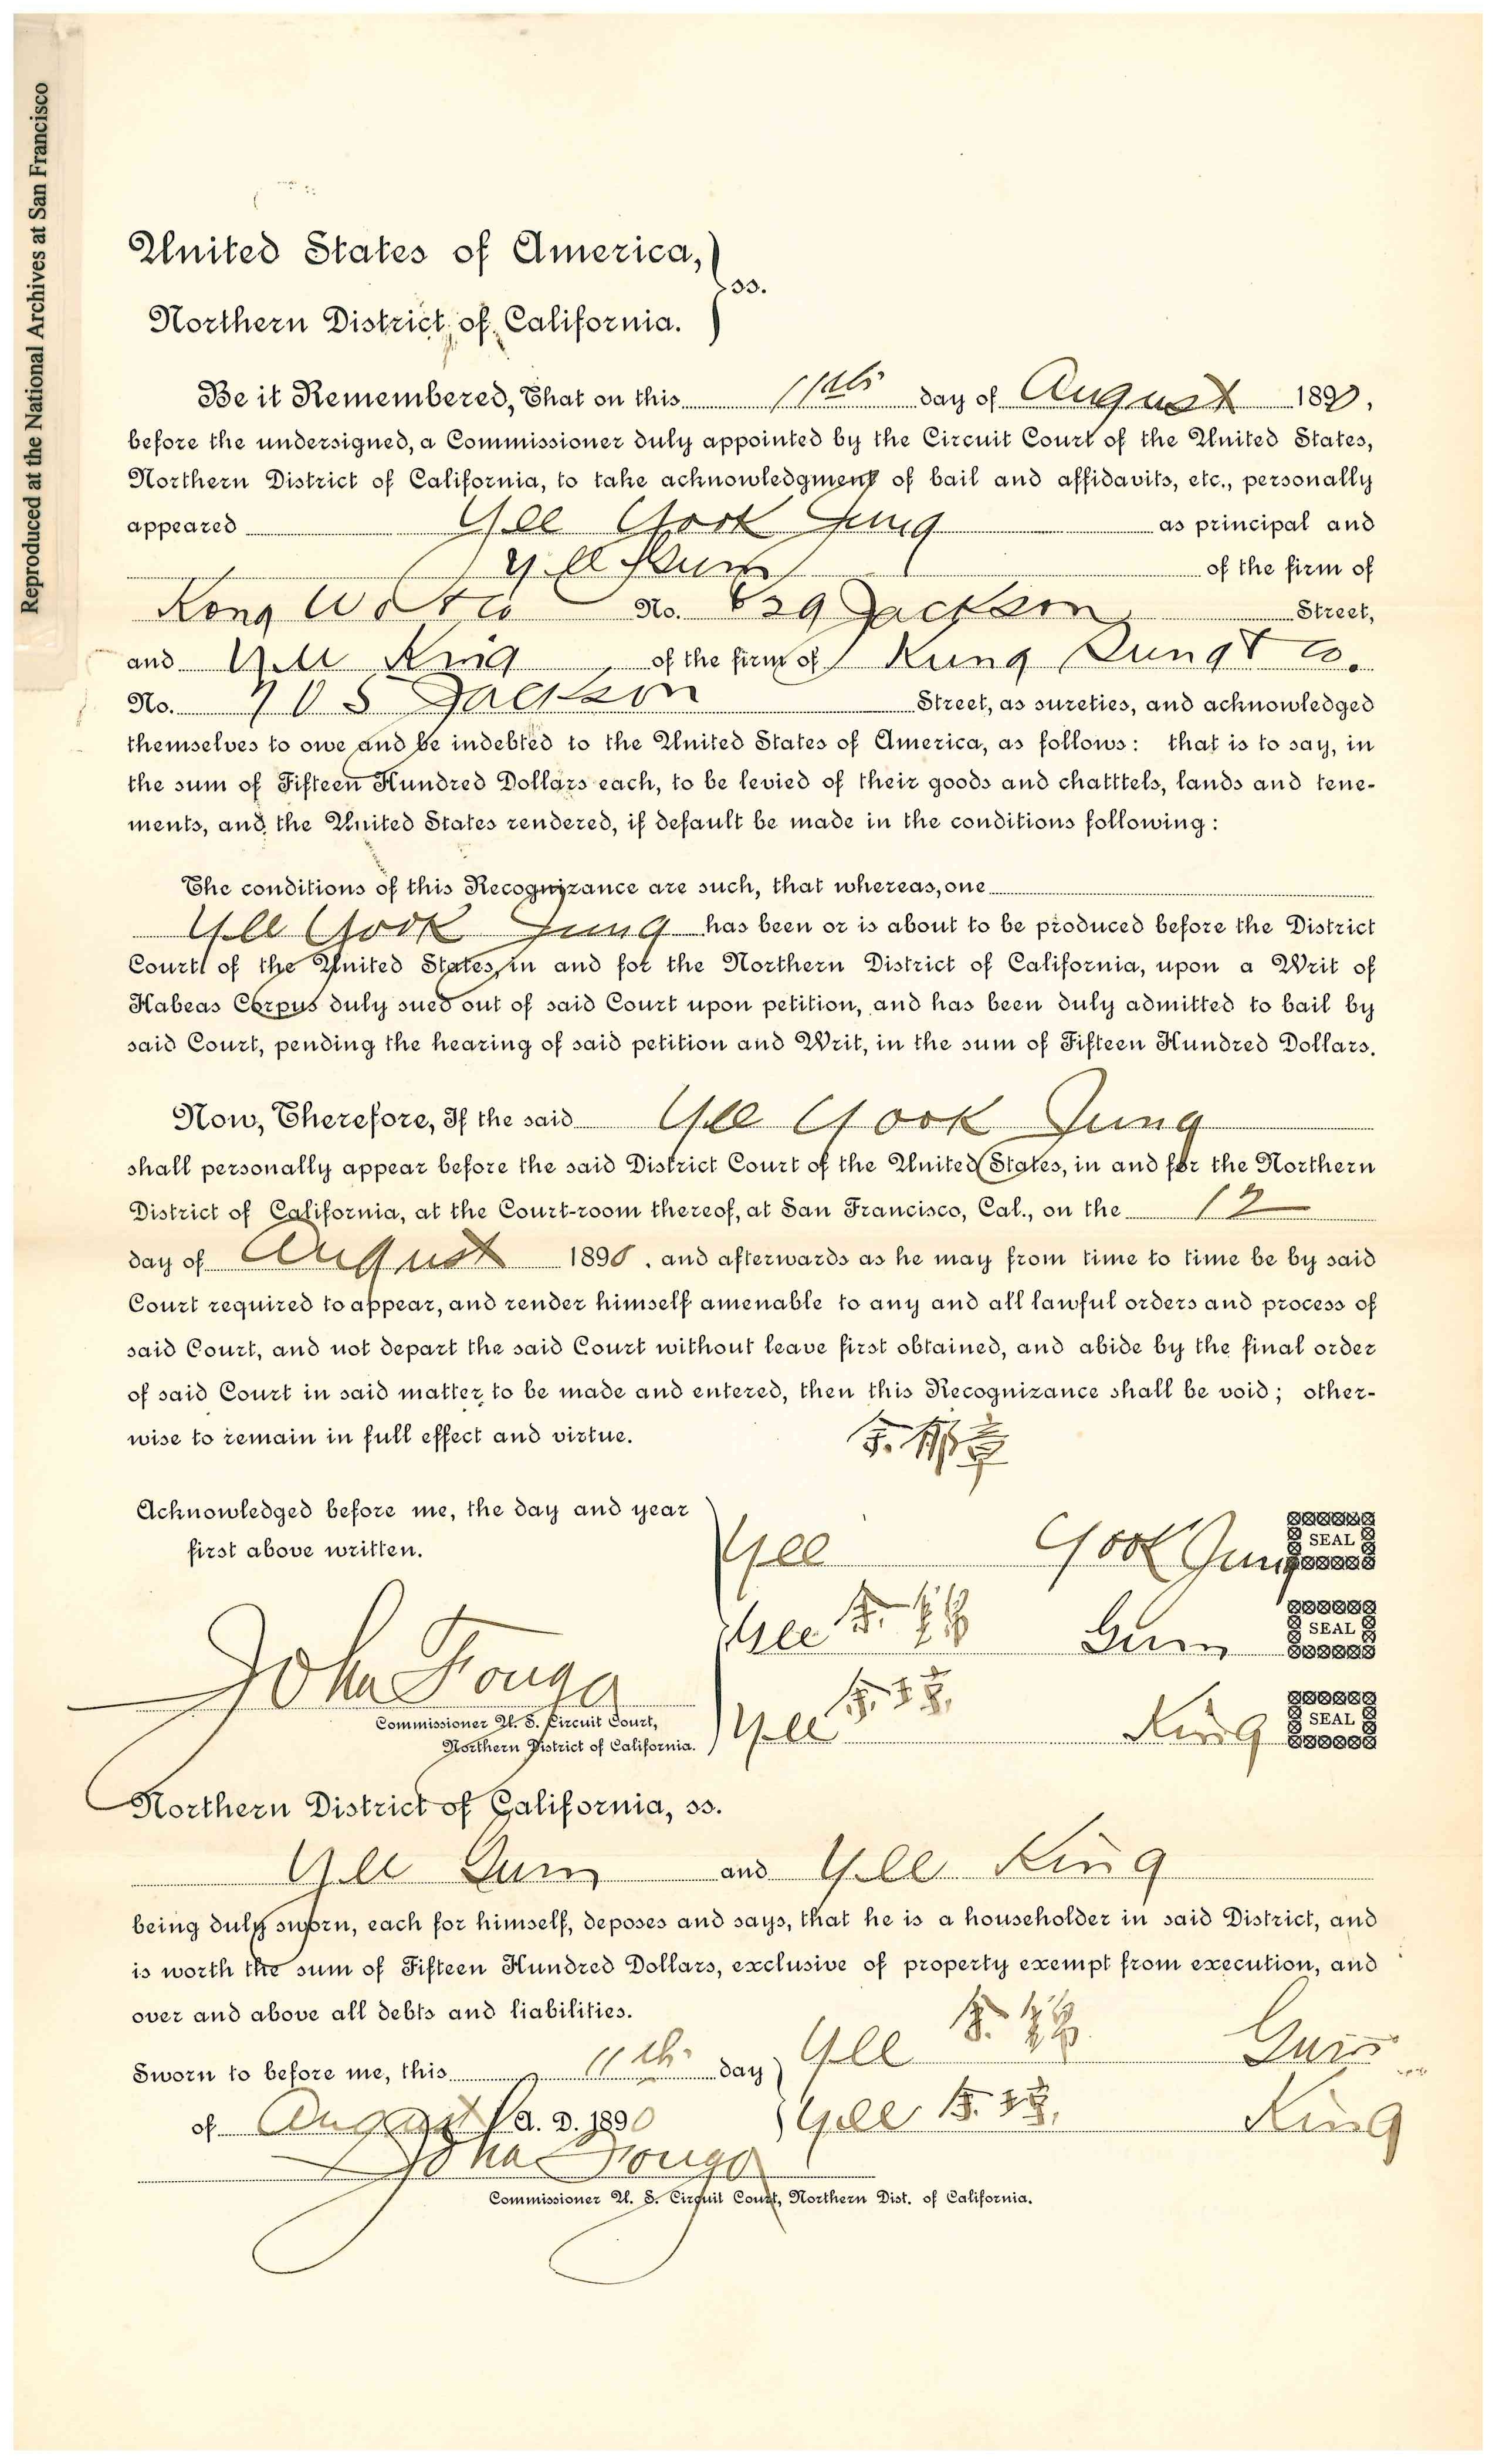 Reproduced at the National Archives at San Francisco
United States of America,
ss.
Northern District of California.
Be it Remembered, That on this 11th day of August 1890,
before the undersigned, a Commissioner duly appointed by the Circuit Court of the United States,
Northern District of California, to take acknowledgment of bail and affidavits, etc., personally
appeared Yee Gook Jung as principal and
Yee Gum of the firm of
Kong Wo & Co No. 629 Jackson Street,
and Yee King of the firm of Kung Lung & Co.
No. 705 Jackson Street, as sureties, and acknowledged
themselves to owe and be indebted to the United States of America, as follows: that is to say, in
the sum of Fifteen Hundred Dollars each, to be levied of their goods and chatttels, lands and tene-
ments, and the United States rendered, if default be made in the conditions following:
The conditions of this Recognizance are such, that whereas, one
Yee Gook Jung has been or is about to be produced before the District
Court of the United States, in and for the Northern District of California, upon a Writ of
Habeas Corpus duly sued out of said Court upon petition, and has been duly admitted to bail by
said Court, pending the hearing of said petition and Writ, in the sum of Fifteen Hundred Dollars.
Now, Therefore, If the said Yee Gook Jung
shall personally appear before the said District Court of the United States, in and for the Northern
District of California, at the Court-room thereof, at San Francisco, Cal., on the 12
day of August 1890, and afterwards as he may from time to time be by said
Court required to appear, and render himself amenable to any and all lawful orders and process of
said Court, and not depart the said Court without leave first obtained, and abide by the final order
of said Court in said matter, to be made and entered, then this Recognizance shall be void; other-
wise to remain in full effect and virtue.
Acknowledged before me, the day and year
first above written.
Yee Gook Jung SEAL
Yee Gum SEAL
John Fouga
Commissioner U. S. Circuit Court,
Northern District of California.
Yee King SEAL
Northern District of California, ss.
Yee Gum and Yee King
being duly sworn, each for himself, deposes and says, that he is a householder in said District, and
is worth the sum of Fifteen Hundred Dollars, exclusive of property exempt from execution, and
over and above all debts and liabilities.
Sworn to before me, this 11th day Yee Gum
of August A. D. 1890 Yee King
John Fouga
Commissioner U. S. Circuit Court, Northern Dist. of California.